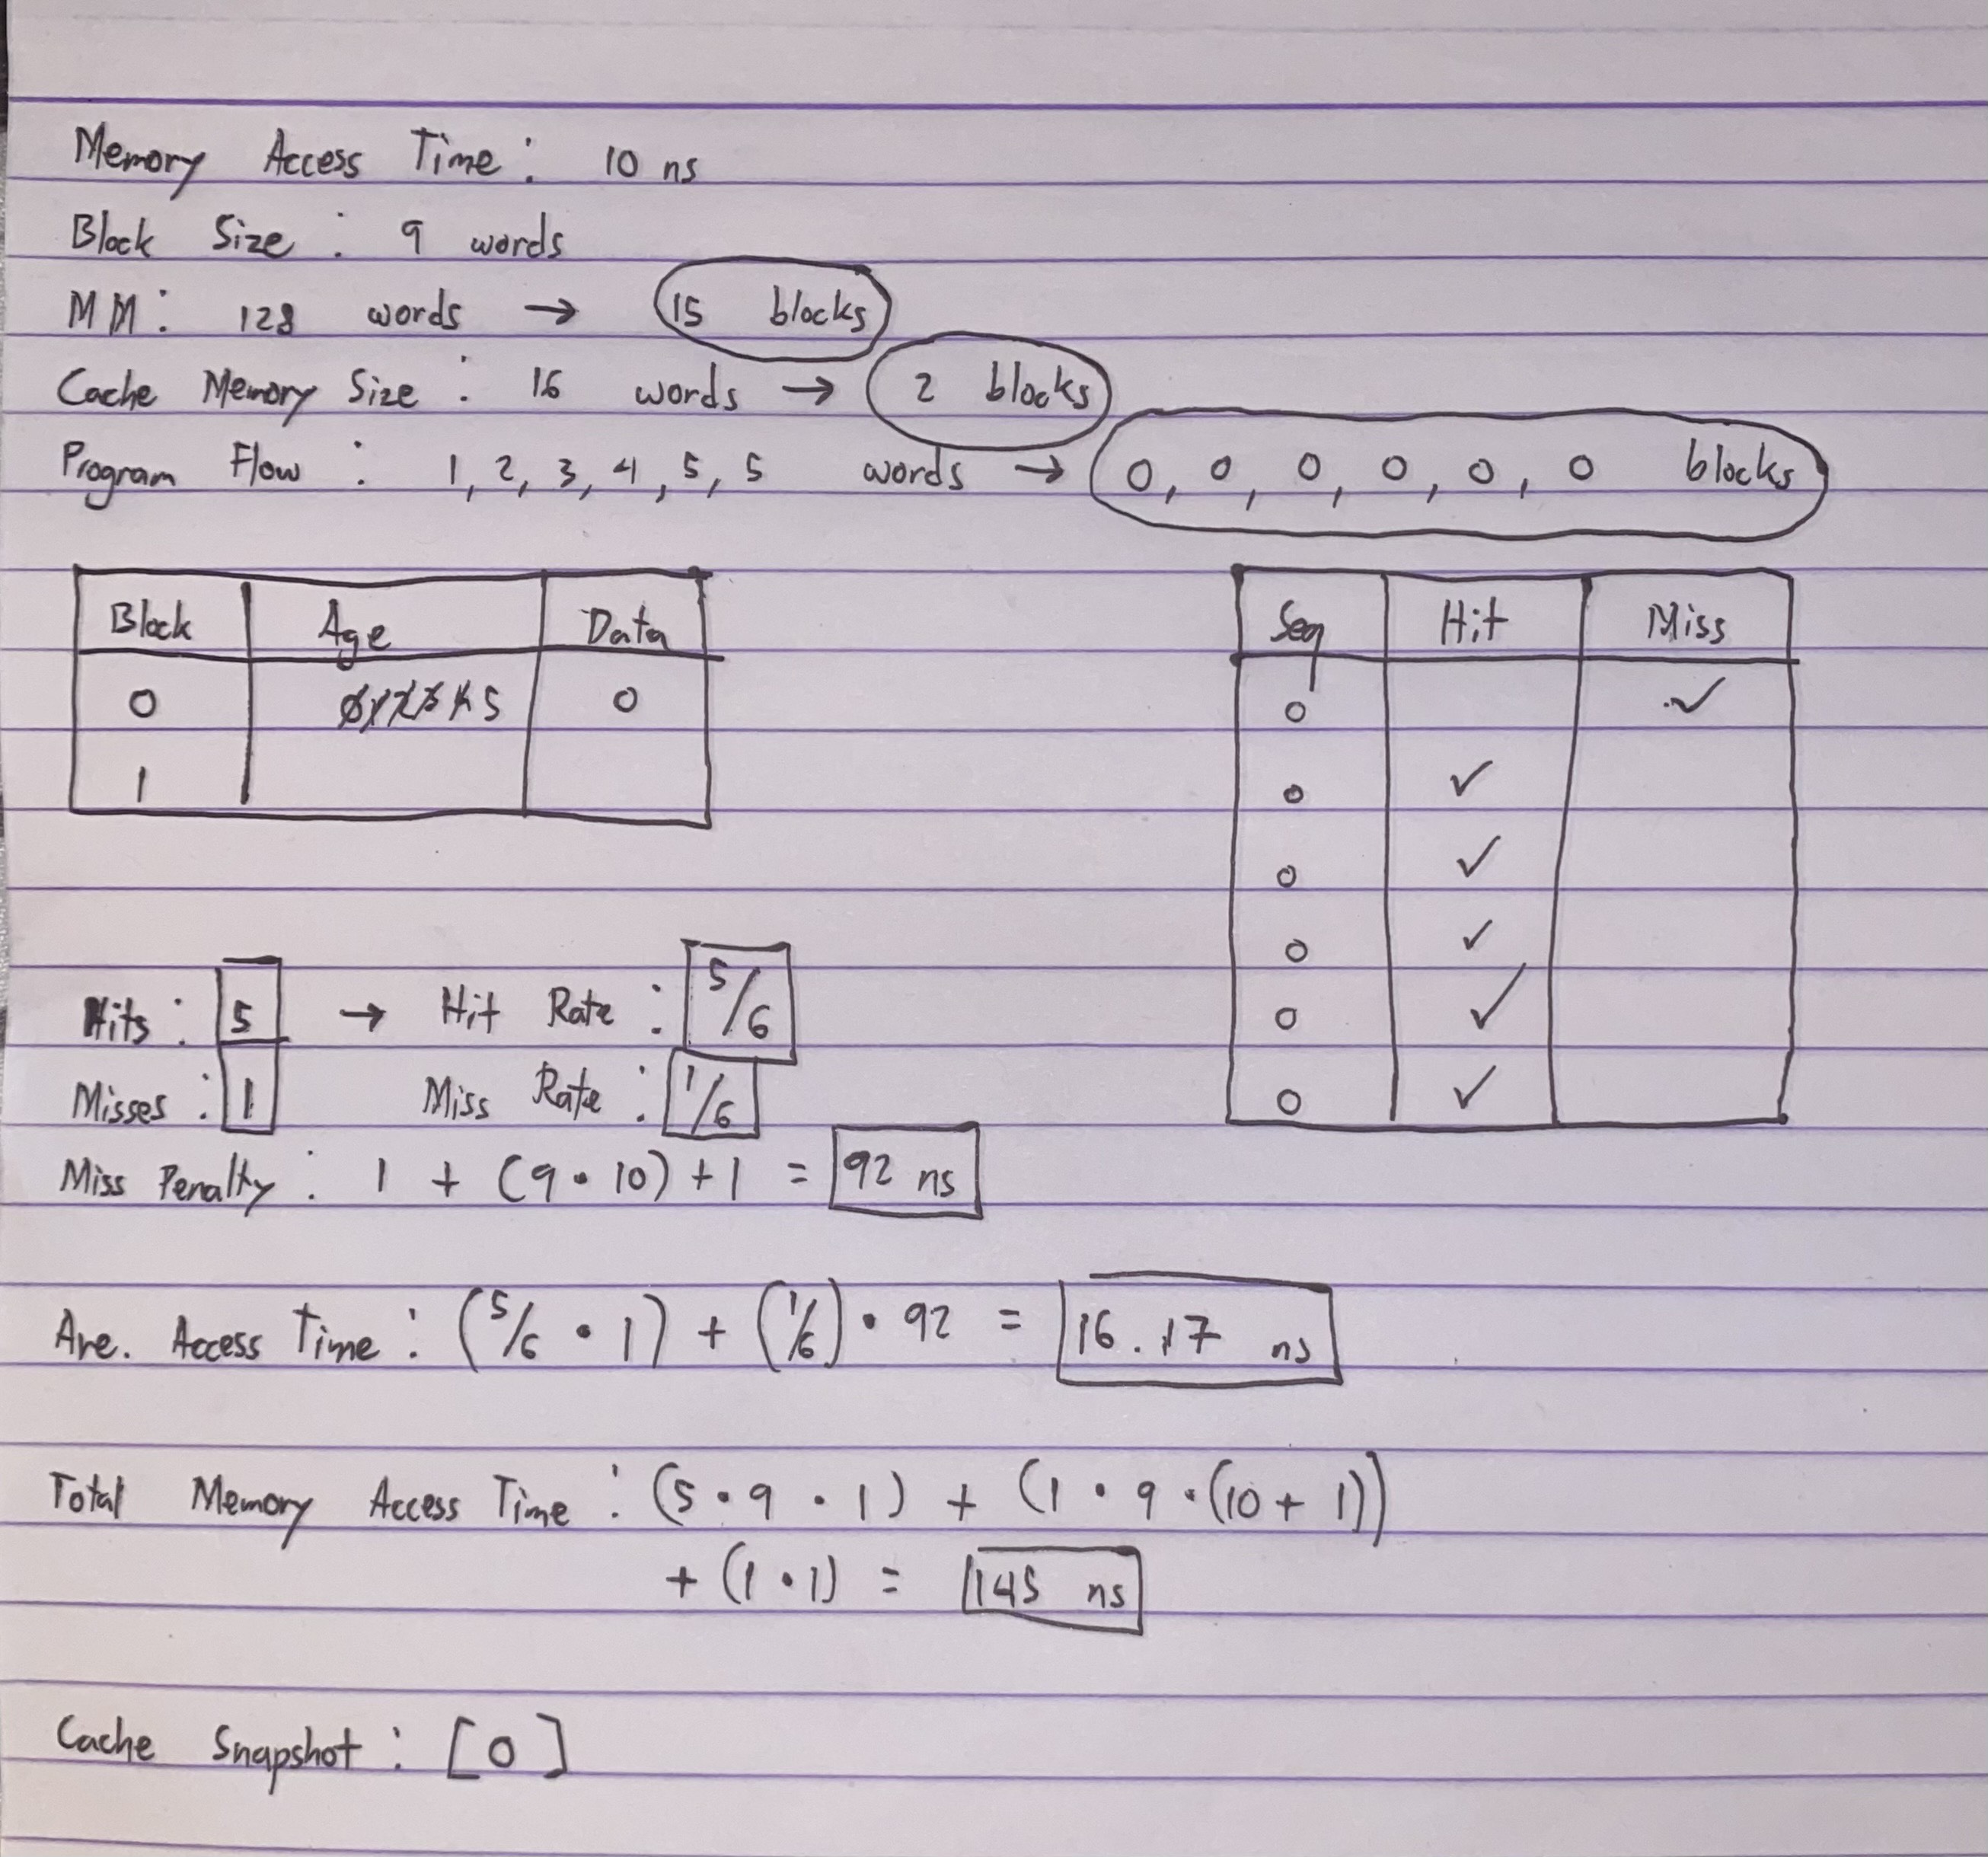 Memory Access Time : 10 ns
Block Size : 9 words
MM : 128 words → 15 blocks
Cache Memory Size : 16 words → 2 blocks
Program Flow : 1, 2, 3, 4, 5, 5 words → 0, 0, 0, 0, 0, 0 blocks
Block Age Data
0 0 1 2 3 4 5 0
1
Seq Hit Miss
0 ✓
0 ✓
0 ✓
0 ✓
0 ✓
0 ✓
Hits : 5 → Hit Rate : 5/6
Misses : 1 Miss Rate : 1/6
Miss Penalty : 1 + (9 • 10) + 1 = 92 ns
Ave. Access Time : (5/6 • 1) + (1/6) • 92 = 16.17 ns
Total Memory Access Time : (5 • 9 • 1) + (1 • 9 • (10 + 1))
+ (1 • 1) = 145 ns
Cache Snapshot : [0]